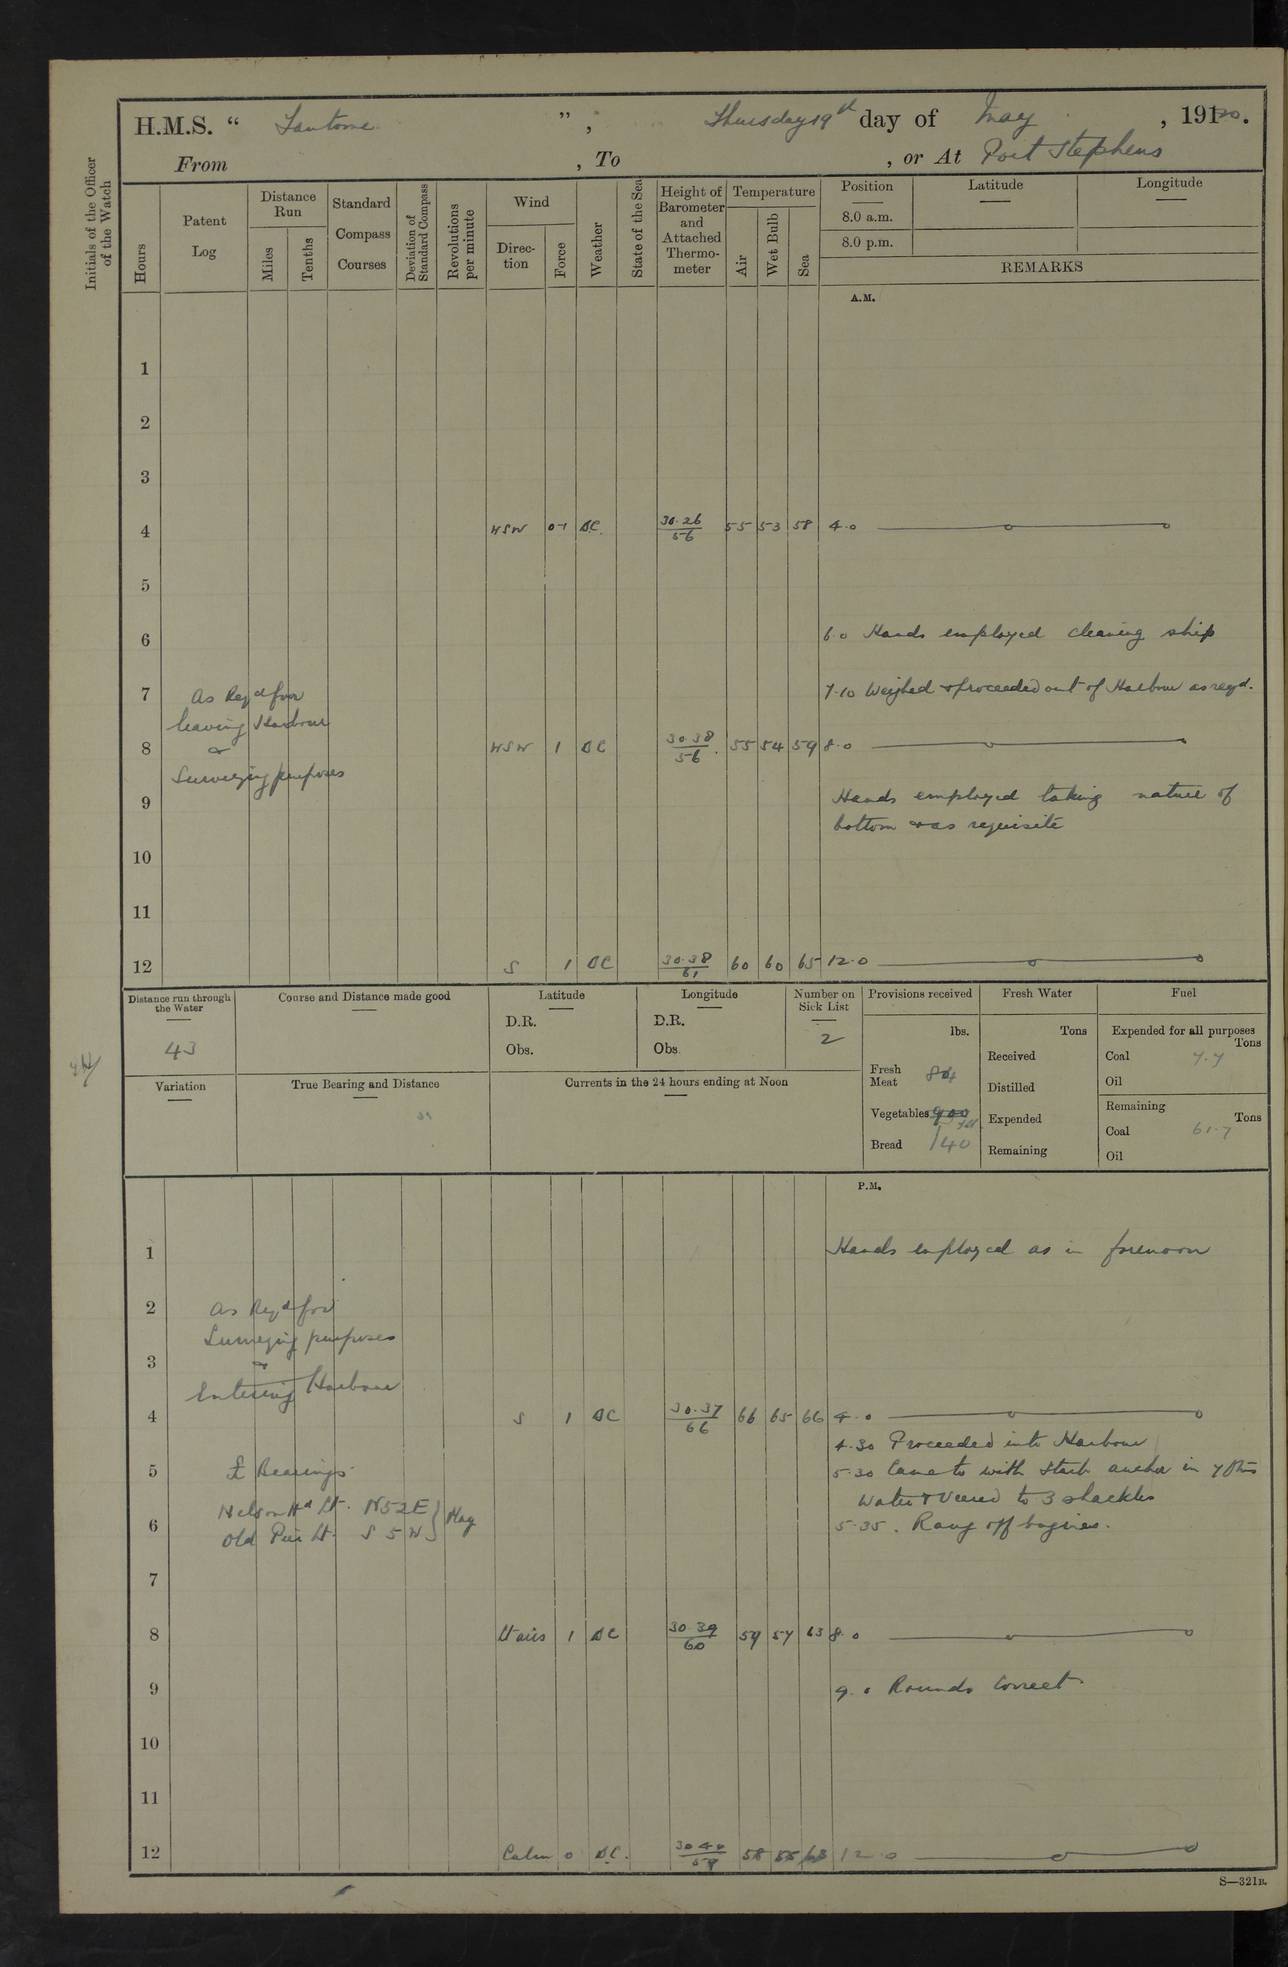 H.M.S. “ Fantome ” , Thursday 19th day of May , 1910.
From , To , or At Port Stephens
Initials of the Officer of the Watch
Hours
Patent Log
Distance Run
Miles
Tenths
Standard Compass Courses
Deviation of Standard Compass
Revolutions per minute
Wind
Direction
Force
Weather
State of the Sea
Height of Barometer and Attached Thermometer
Temperature
Air
Wet Bulb
Sea
Position Latitude Longitude
8.0 a.m.
8.0 p.m.
REMARKS
A.M.
1
2
3
4 WSW 0-1 BC 30.26/56 55 53 58 4.0
5
6 6.0 Hands employed cleaning ship
7 As Reqd for 7.10 Weighed & proceeded out of Harbour as reqd.
leaving Harbour
8 & WSW 1 BC 30.38/56 55 54 59 8.0
Surveying purposes
9 Hands employed taking nature of
bottom & as requisite
10
11
12 S 1 BC 30.38/61 60 60 65 12.0
Distance run through the Water
43
Course and Distance made good
Latitude
D.R.
Obs.
Longitude
D.R.
Obs.
Number on Sick List
2
Provisions received
lbs.
Fresh Meat 84
Vegetables
Bread 140
Fresh Water
Tons
Received
Distilled
Expended
Remaining
Fuel
Expended for all purposes
Tons
Coal 7.7
Oil
Remaining
Tons
Coal 61.7
Oil
Variation
True Bearing and Distance
Currents in the 24 hours ending at Noon
P.M.
1 Hands employed as in forenoon
2 As Reqd for
Surveying purposes
3 &
Entering Harbour
4 S 1 BC 30.37/66 66 65 66 4.0
4.30 Proceeded into Harbour
5 Bearings 5.30 Came to with Starb anchor in 7 fms
Nelson Hd Lt. N52E water & Veered to 3 shackles
6 Old Pier Lt. S 5 W } Mag 5.35. Rang off bugines.
7
8 Lt airs 1 BC 30.39/60 59 57 63 8.0
9 9.0 Rounds Correct
10
11
12 Calm 0 BC. 30.40/59 58 55 63 12.0
S—321B.